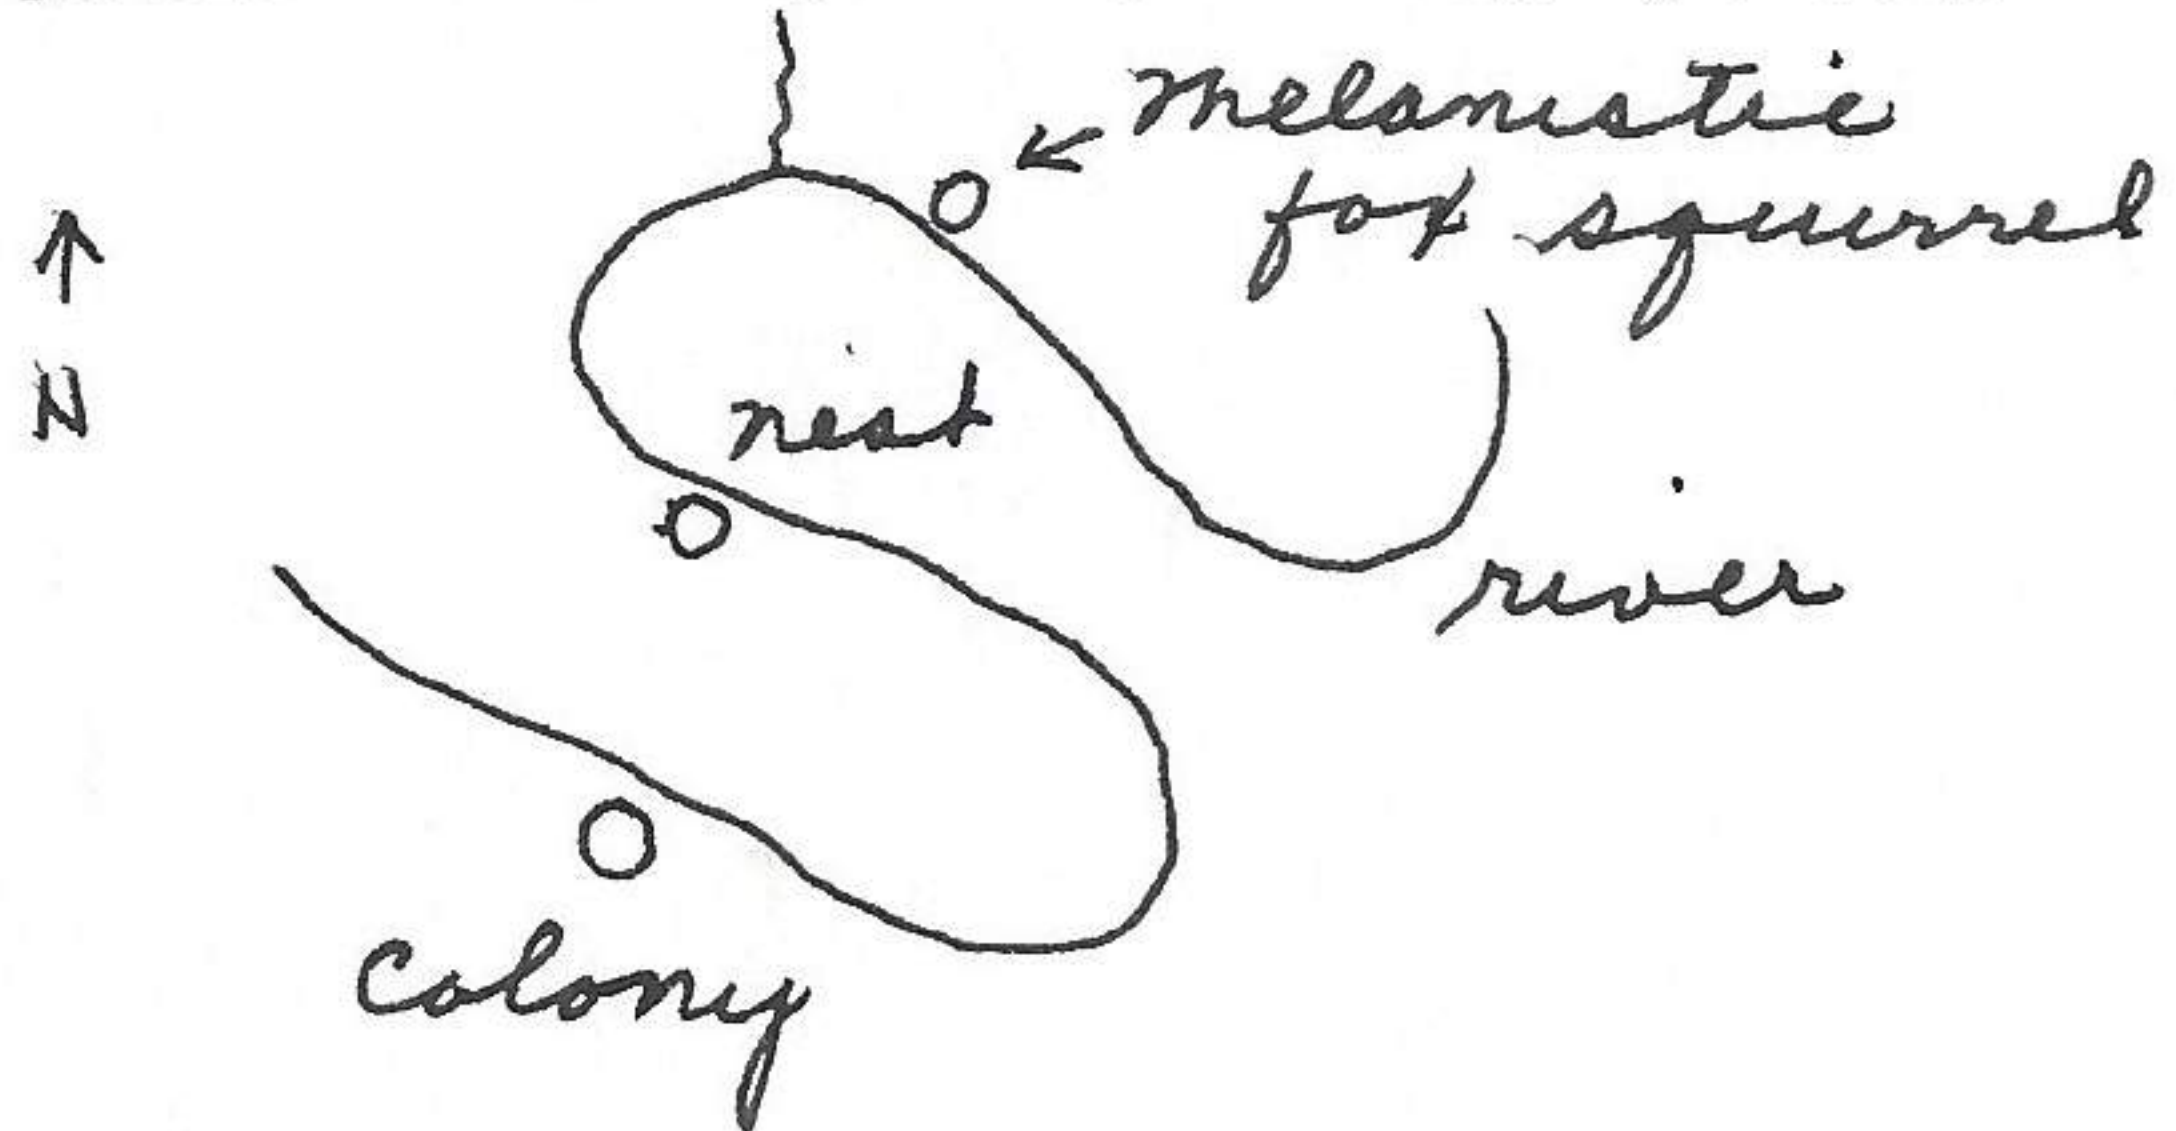 Melanistic
fox squirrel
N
nest
river
Colony